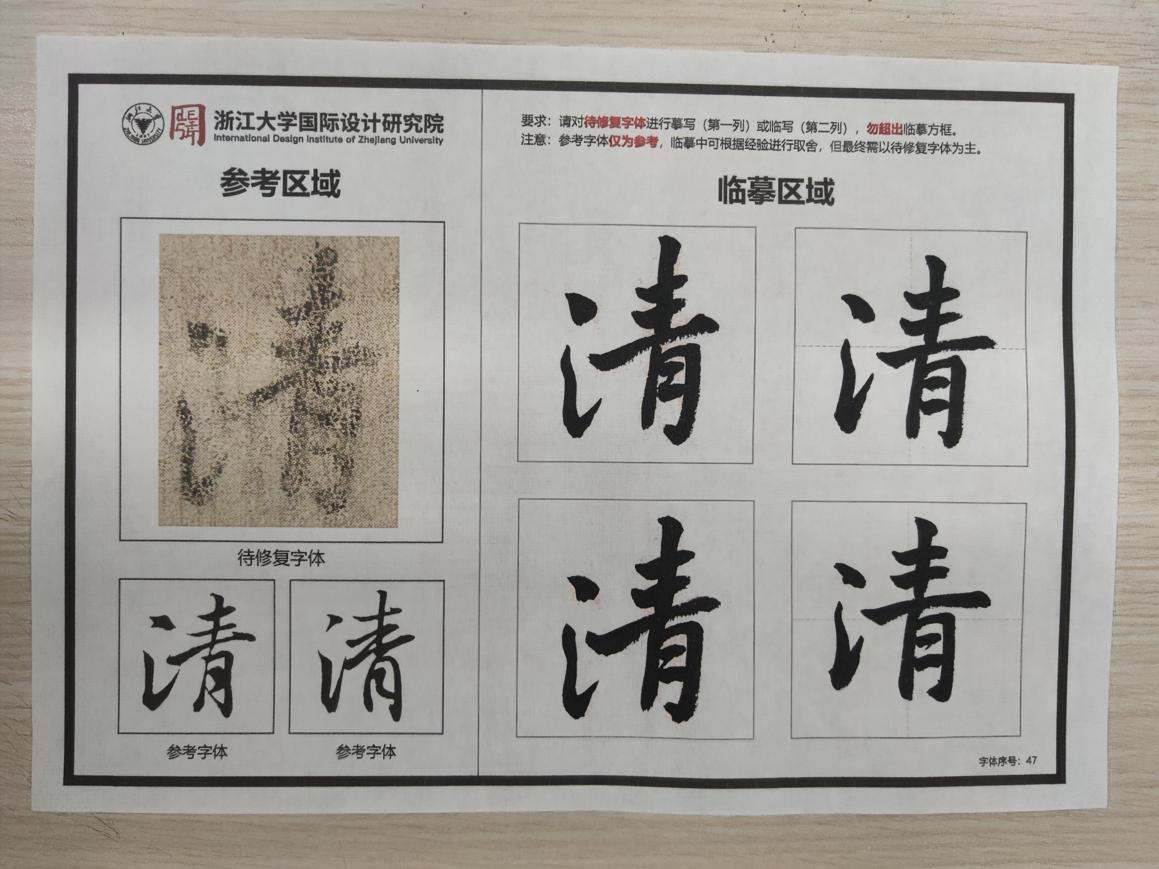 浙江大学国际设计研究院
International Design Institute of Zhejiang University
参考区域
清
待修复字体
清 清
参考字体 参考字体
要求：请对待修复字体进行摹写（第一列）或临写（第二列），勿超出临摹方框。
注意：参考字体仅为参考，临摹中可根据经验进行取舍，但最终需以待修复字体为主。
临摹区域
清 清
清 清
字体序号：47